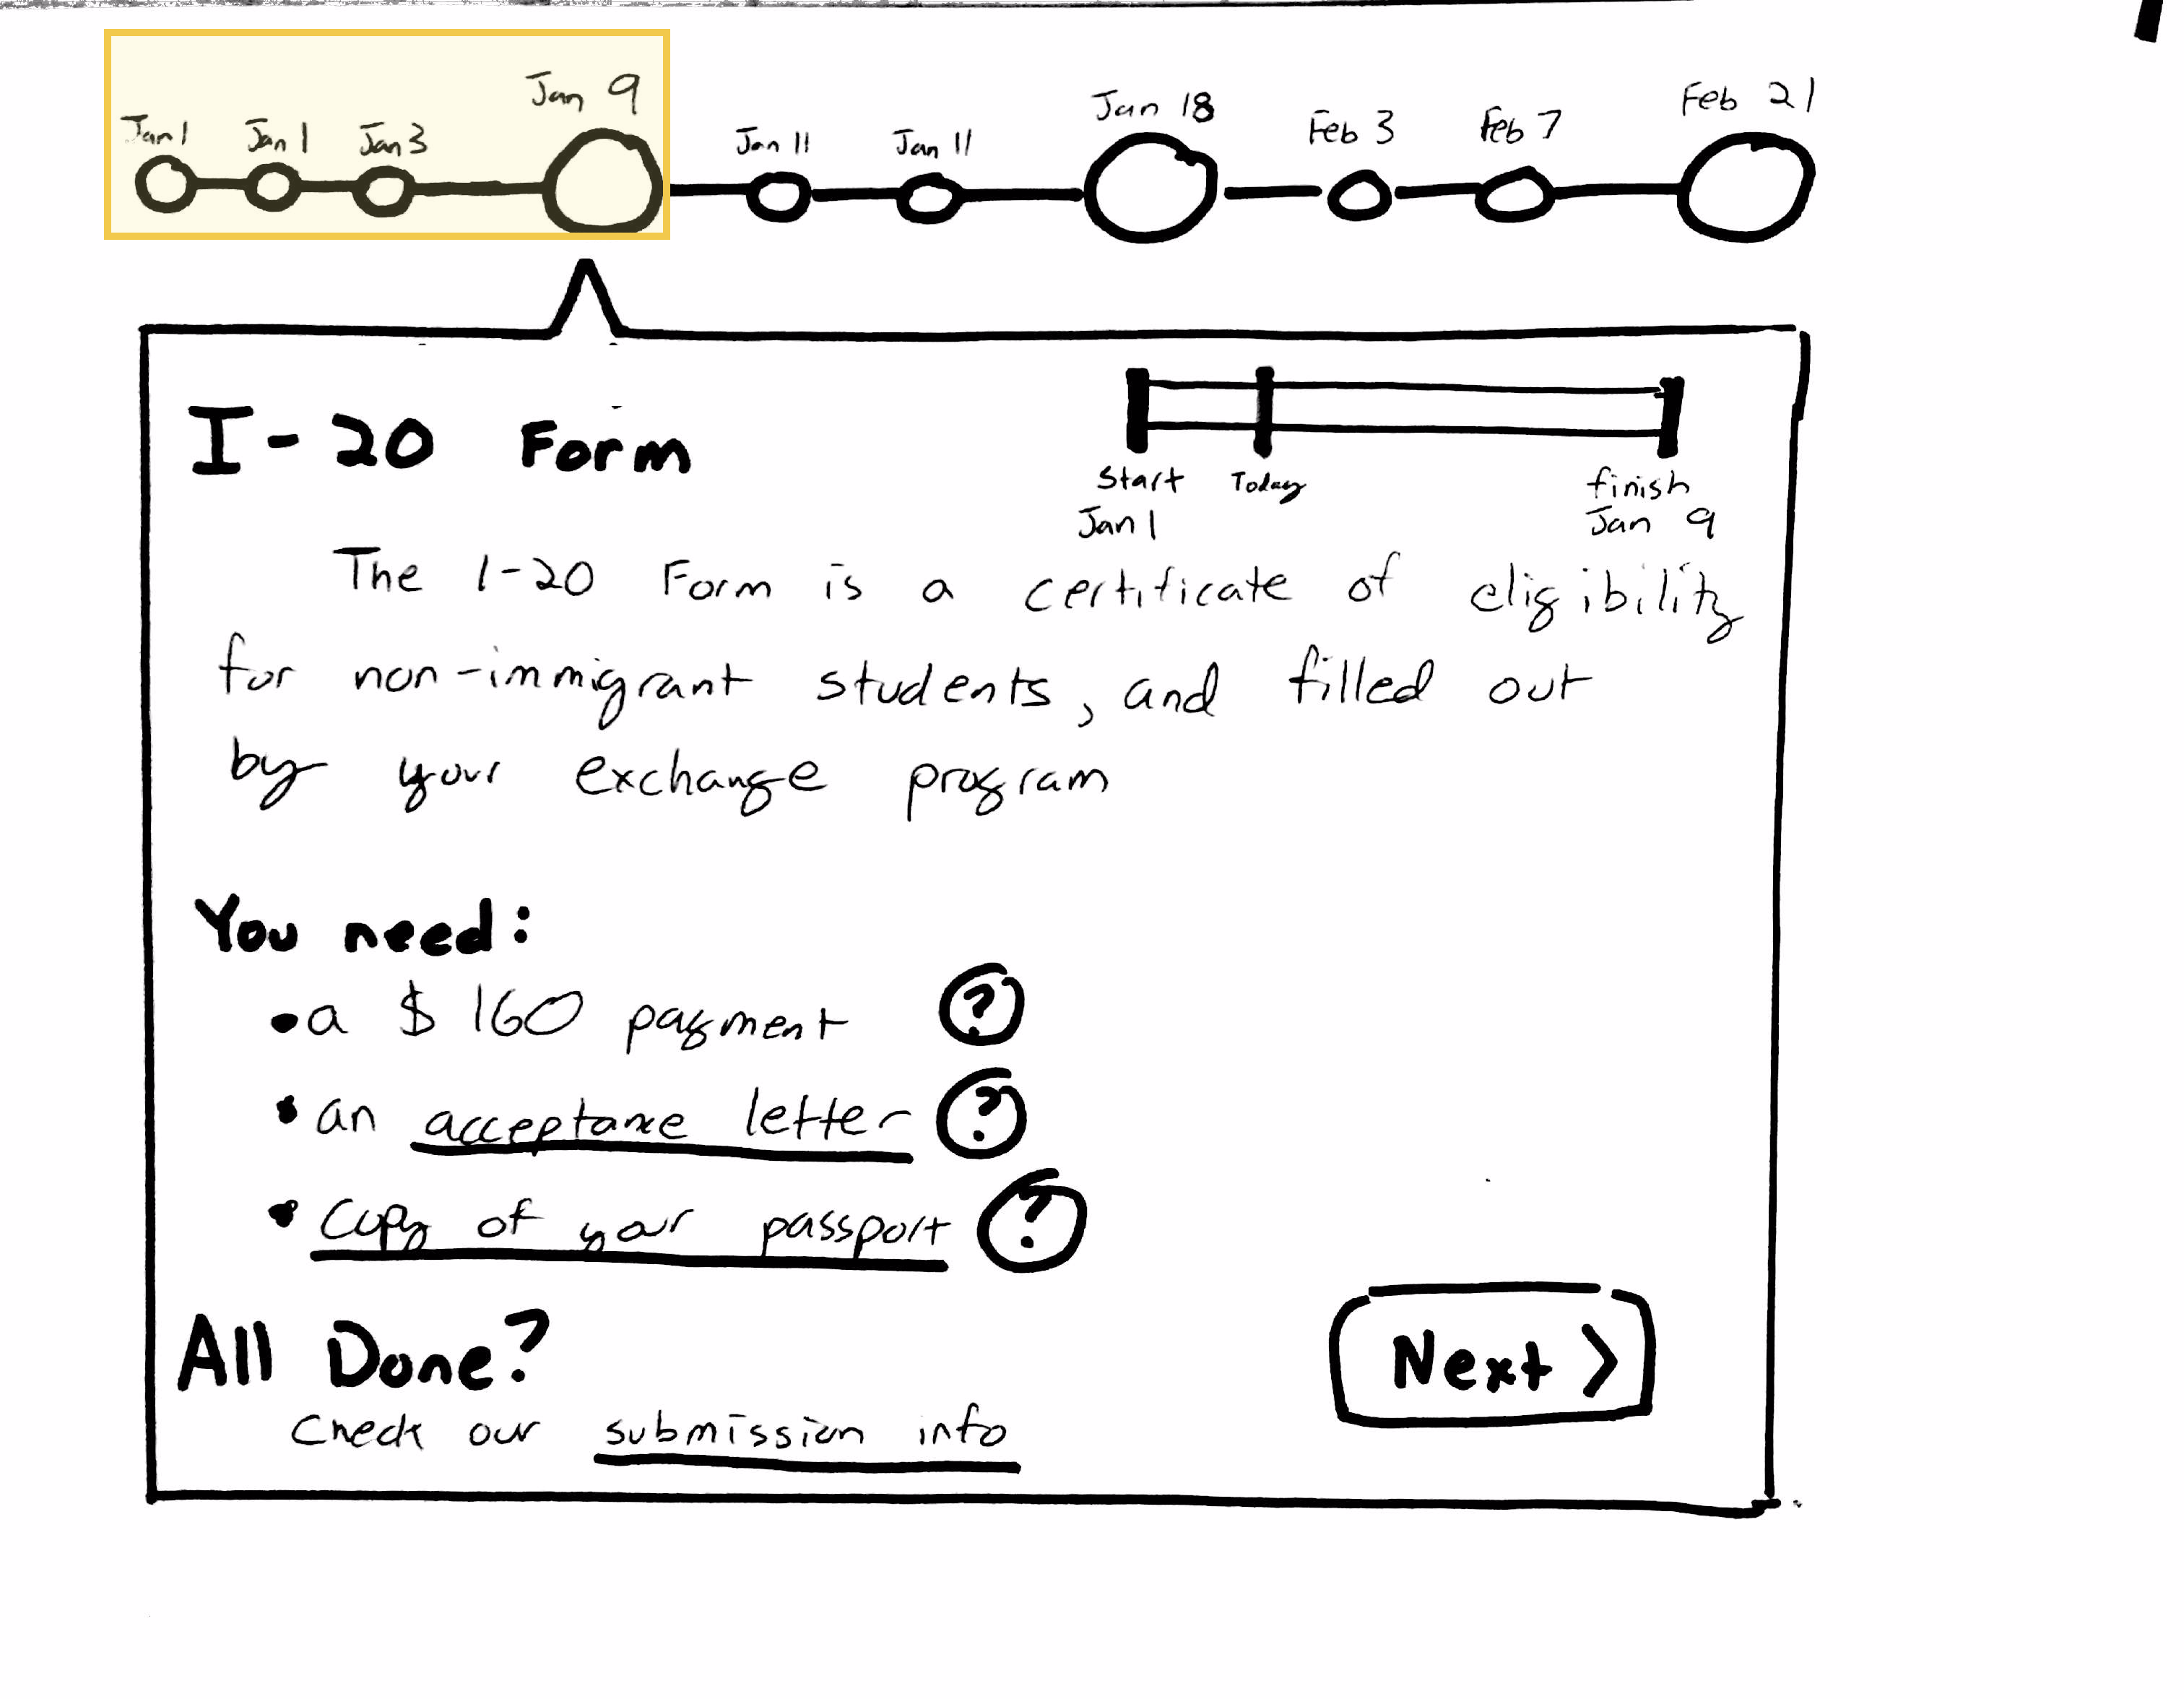 Jan 1 Jan 1 Jan 3 Jan 9 Jan 11 Jan 11 Jan 18 Feb 3 Feb 7 Feb 21
I-20 Form
Start Today finish
Jan 1 Jan 9
The I-20 Form is a certificate of eligibility
for non-immigrant students, and filled out
by your exchange program
You need:
• a $160 payment ?
• an acceptance letter ?
• copy of your passport ?
All Done?
Next >
Check our submission info